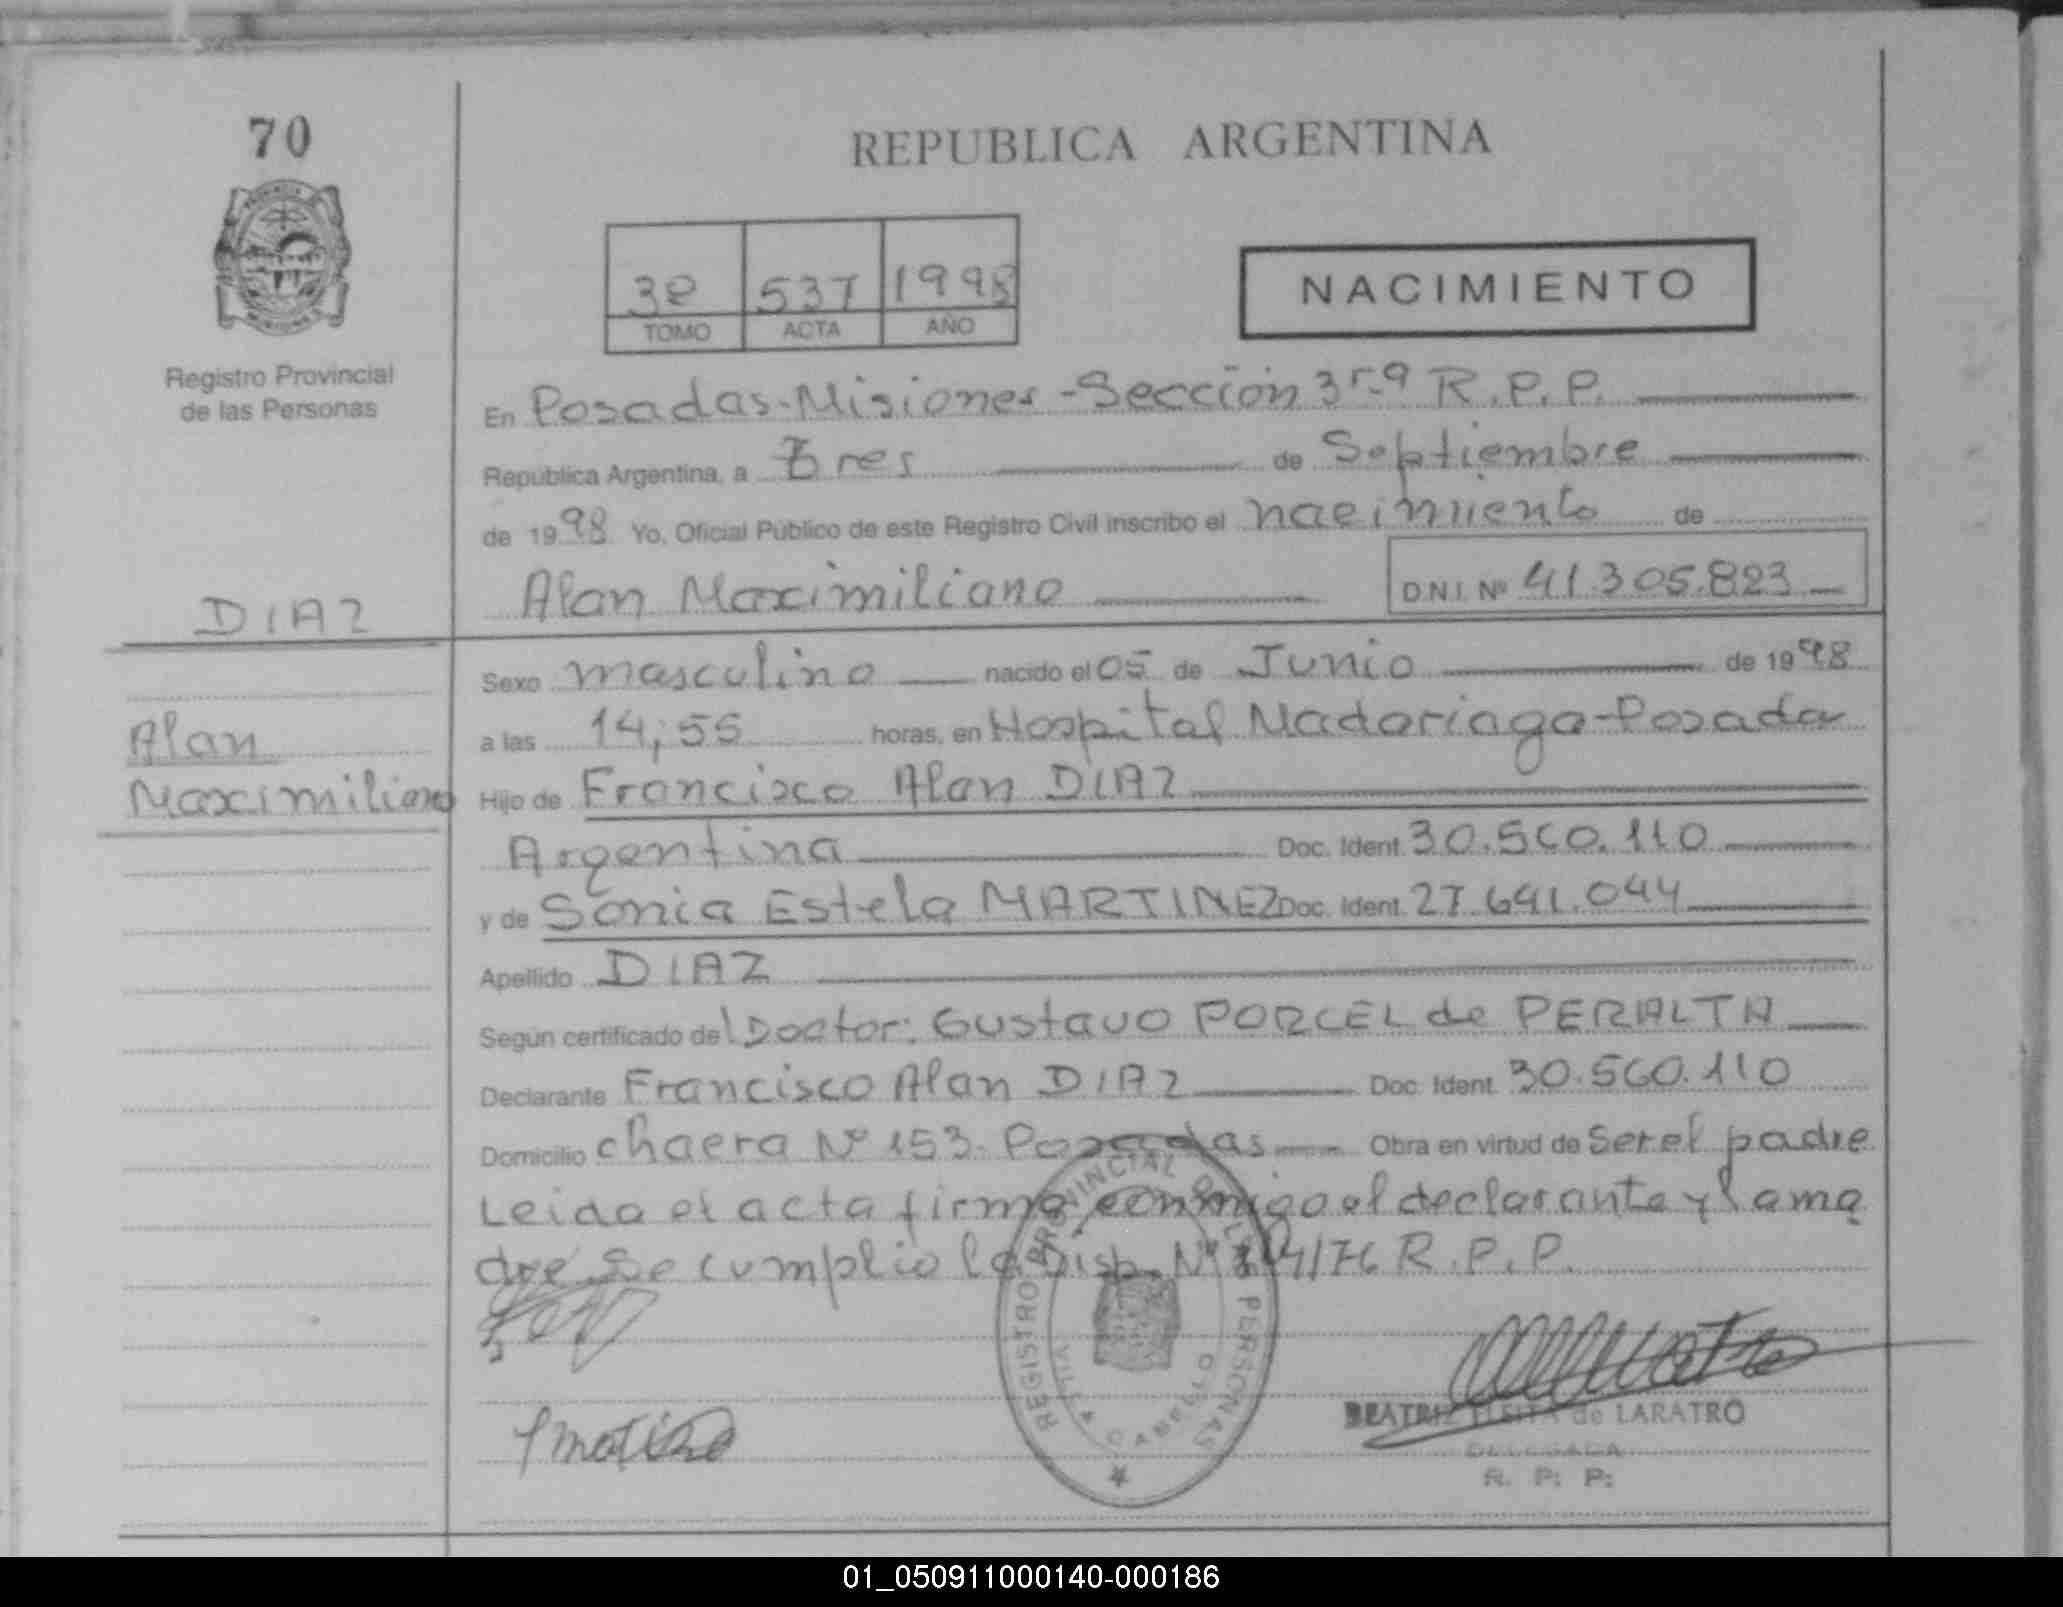 70
REPUBLICA ARGENTINA
PROVINCIA
MISIONES
Registro Provincial
de las Personas
3º 537 1998
TOMO ACTA AÑO
NACIMIENTO
En Posadas-Misiones-Sección 3ra R.P.P.
República Argentina, a Tres de Septiembre
de 1998 Yo, Oficial Público de este Registro Civil inscribo el nacimiento de
Alan Maximiliano D.N.I. Nº 41.305.823
DIAZ
Alan
Maximiliano
Sexo masculino nacido el 05 de Junio de 1998
a las 14;55 horas, en Hospital Madariaga-Posadas
Hijo de Francisco Alan DIAZ
Argentina Doc. Ident. 30.560.110
y de Sonia Estela MARTINEZ Doc. Ident. 27.641.044
Apellido DIAZ
Según certificado del Doctor: Gustavo PORCEL de PERALTA
Declarante Francisco Alan DIAZ Doc. Ident. 30.560.110
Domicilio chacra Nº 153- Posadas Obra en virtud de Ser el padre
Leida el acta firma conmigo el declarante y la ma
dre Se cumplio la Disp. Nº /76 R.P.P.
REGISTRO PROVINCIAL DE LAS PERSONAS
VILLA CABELLO
BEATRIZ de LARATRO
DELEGADA
R. P. P.
01_050911000140-000186